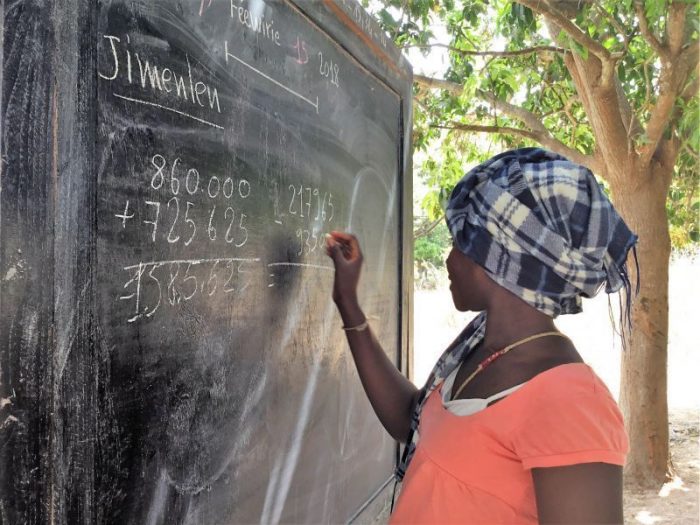 Feewirie 15 2018
Jimenlen
860.000
+ 725.625
= 1585.625
- 217965
=